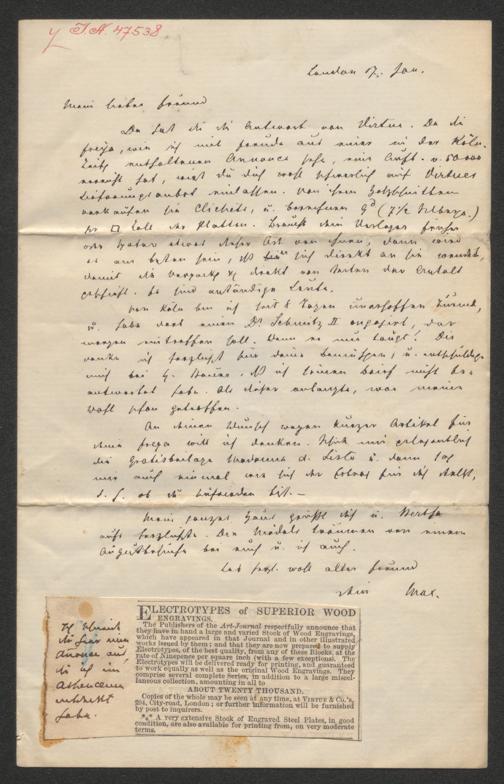 J.N. 47538
London 7. Jan.
Mein lieber Freund
Da hast du die Antwort von Virtue. Da die
Freya, wie ich mit Freude aus einer in der Köln.
Zeitg enthaltenen Annonce sehe, eine Aufl. v. 50000
erreicht hat, wirst du dich wohl schwerlich auf Virtues
einlassen. Von ihren Holzschnitten
verkaufen sie Clichés, u. berechnen 9d (7½ Silbergr.)
per □ Zoll der Platten. Braucht dein Verleger früher
oder später etwas dieser Art von ihnen, dann wird
es am besten sein, er sich direkt an sie wendet,
damit die direkt von Seiten der Anstalt
geschieht. Es sind anständige Leute.
Von Köln bin ich seit 8 Tagen zurück,
u. habe dort einen Dr. Schmitz II engagirt, der
morgen eintreffen soll. Wenn er nur taugt! Ich
danke dir herzlichst für deine Bemühungen, u. entschuldige
mich bei H. daß ich seinen Brief nicht be-
antwortet habe. Als dieser anlangte, war meine
Wahl schon getroffen.
An deinen Wunsch wegen kurzer Artikel für
deine Freya will ich denken. Schick mir gelegentlich
die Gratisbeilage d. Liste u. dann sag
mir auch einmal wie sich der Erfolg für dich stellt,
d. h. ob du zufrieden bist. —
Mein ganzes Haus grüßt dich u. Bertha
aufs herzlichste. Die Mädels träumen von einem
Augustbesuche bei euch u. ich auch.
Leb herzl. wohl alter Freund
Dein Max.
Ich schneide
dir hier eine
Annonce aus
die ich im
Athenaeum
entdeckt
habe.
ELECTROTYPES of SUPERIOR WOOD
ENGRAVINGS.
The Publishers of the Art-Journal respectfully announce that
they have in hand a large and varied Stock of Wood Engravings,
which have appeared in that Journal and in other illustrated
works issued by them; and that they are now prepared to supply
Electrotypes, of the best quality, from any of these Blocks, at the
rate of Ninepence per square inch (with a few exceptions). The
Electrotypes will be delivered ready for printing, and guaranteed
to work equally as well as the original Wood Engravings. They
comprise several complete Series, in addition to a large miscel-
laneous collection, amounting in all to
ABOUT TWENTY THOUSAND.
Copies of the whole may be seen at any time, at VIRTUE & Co.'s,
294, City-road, London; or further information will be furnished
by post to inquirers.
*** A very extensive Stock of Engraved Steel Plates, in good
condition, are also available for printing from, on very moderate
terms.